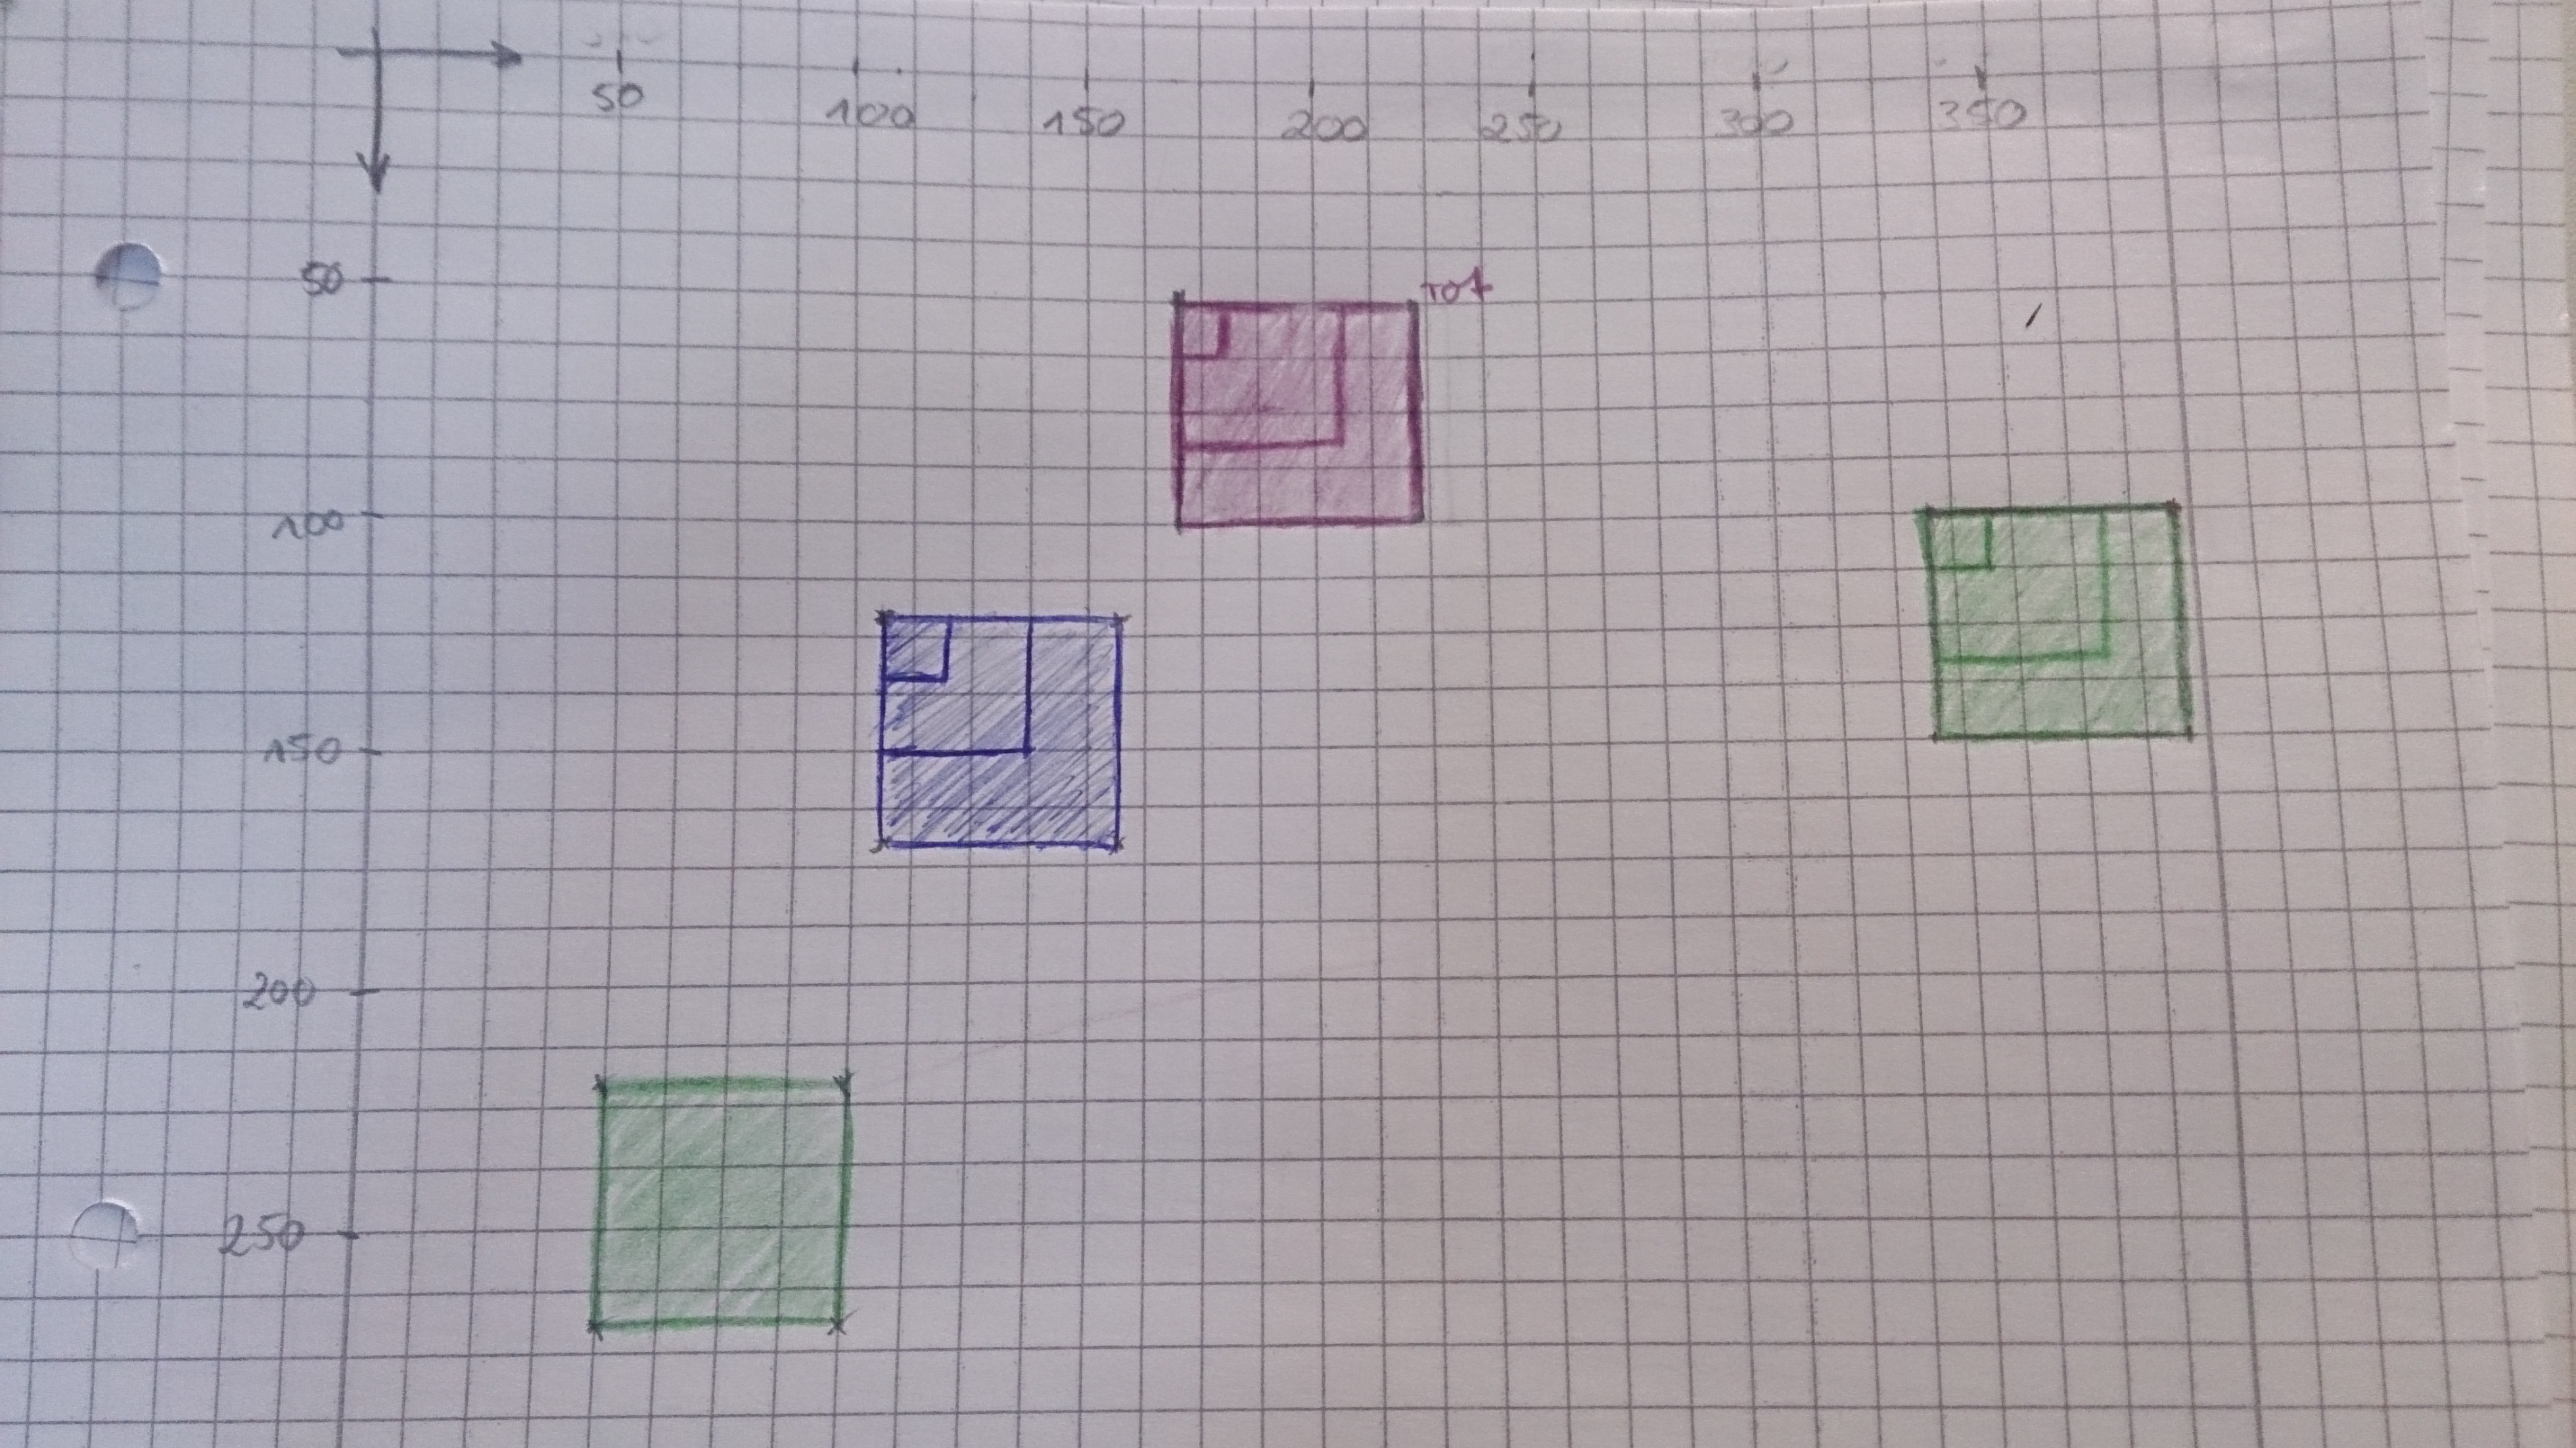 50 100 150 200 250 300 350
50
rot
100
150
200
250